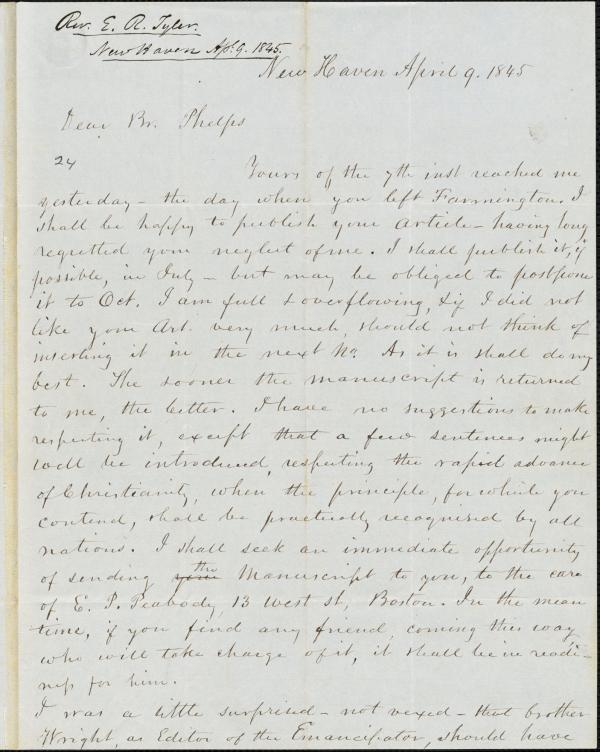 Rev. E. R. Tyler.
New Haven Ap. 9. 1845.
New Haven April 9. 1845
Dear Br. Phelps
24
Yours of the 7th inst reached me
yesterday - the day when you left Farmington. I
shall be happy to publish your article - having long
regretted your neglect of me. I shall publish it, if
possible, in July - but may be obliged to postpone
it to Oct. I am full & overflowing, & if I did not
like your Art. very much, should not think of
inserting it in the next No. As it is shall do my
best. The sooner the manuscript is returned
to me, the better. I have no suggestions to make
respecting it, except that a few sentences might
well be introduced, respecting the rapid advance
of Christianity, when the principle, for which you
contend, shall be practically recognised by all
nations. I shall seek an immediate opportunity
of sending your the Manuscript to you, to the care
of E. P. Peabody, 13 West st, Boston. In the mean
time, if you find any friend, coming this way
who will take charge of it, it shall be in readi-
ness for him.
I was a little surprised - not vexed - that brother
Wright, as Editor of the Emancipator, should have